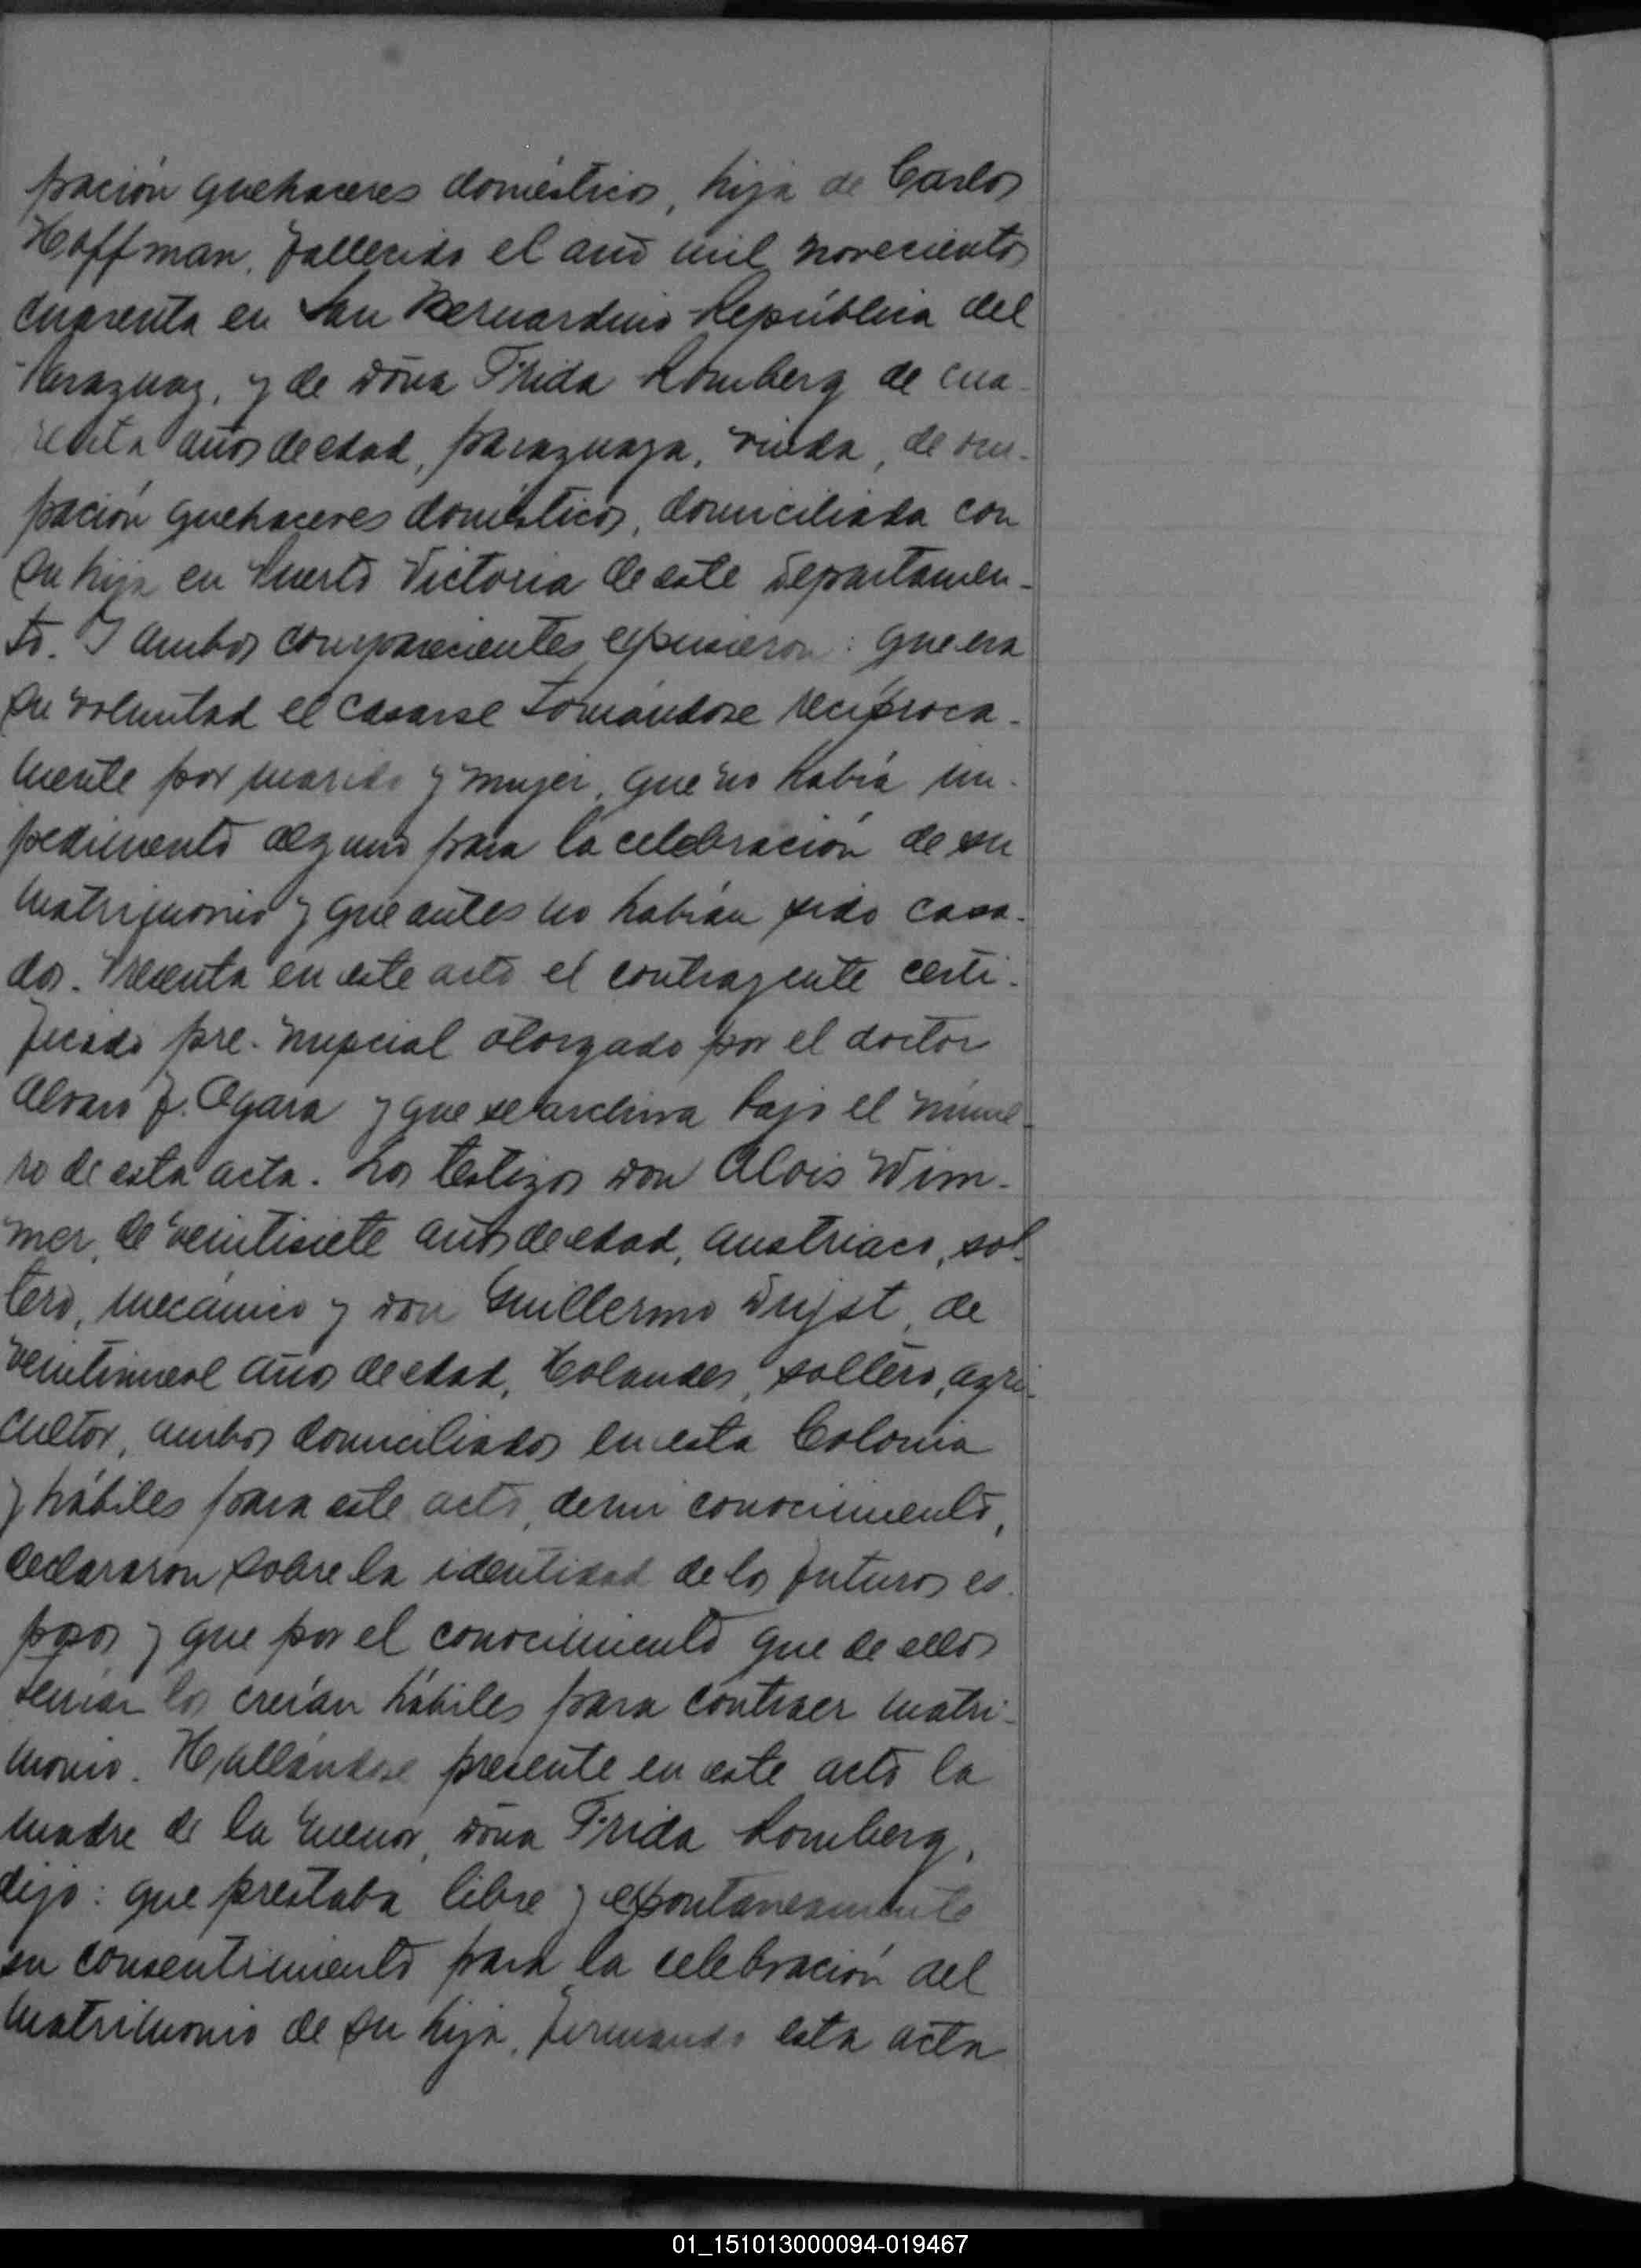 pación quehaceres domésticos, hija de Carlos
Hoffman, fallecido el año mil novecientos
cuarenta en San Bernardino República del
Paraguay, y de doña Frida Lomberg de cua-
renta años de edad, paraguaya, viuda, de ocu-
pación quehaceres domésticos, domiciliada con
su hija en Puerto Victoria de este Departamen-
to. Y ambos comparecientes expusieron: que era
su voluntad el casarse tomándose recíproca-
mente por marido y mujer, que no había im-
pedimento alguno para la celebración de su
matrimonio y que antes no habían sido casa-
dos. Presenta en este acto el contrayente certi-
ficado pre-nupcial otorgado por el doctor
Alvaro J. Ogara y que se archiva bajo el núme-
ro de esta acta. Los testigos don Alois Wim-
mer, de veintisiete años de edad, austriaco, sol-
tero, mecánico y don Guillermo Drijst, de
veintinueve años de edad, Holandes, soltero, agri-
cultor, ambos domiciliados en esta Colonia
y hábiles para este acto, de mi conocimiento,
declararon sobre la identidad de los futuros es-
posos y que por el conocimiento que de ellos
tenían los creían hábiles para contraer matri-
monio. Hallándose presente en este acto la
madre de la menor, doña Frida Lomberg,
dijo: que prestaba libre y espontaneamente
su consentimiento para la celebración del
matrimonio de su hija, firmando esta acta
01_151013000094-019467